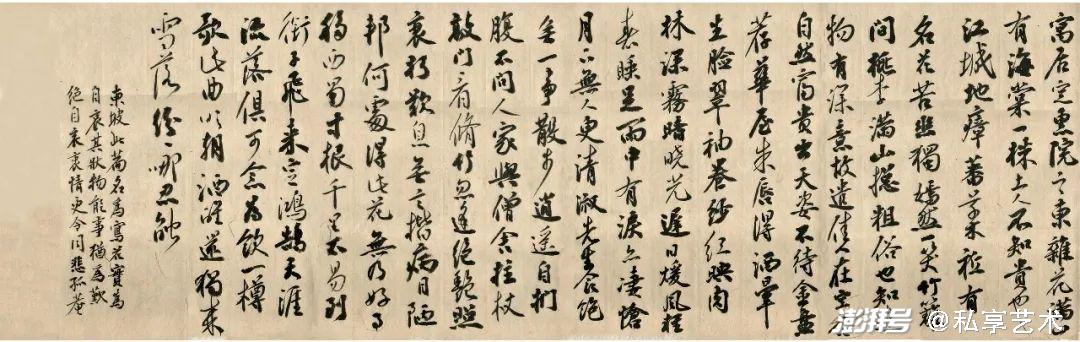 寓居定惠院之東雜花滿山
有海棠一株土人不知貴也
江城地瘴蕃草木祗有
名花苦幽獨嫣然一笑竹籬
間桃李滿山總粗俗也知
物有深意故遣佳人在空谷
自然富貴出天姿不待金盤
荐華屋朱唇得酒暈
生臉翠袖卷紗紅映肉
林深霧暗曉光遲日煖風輕
春睡足雨中有淚亦凄愴
月下無人更清淑先生食飽
無一事散步逍遙自捫
腹不問人家與僧舍拄杖
敲門看脩竹忽逢絕艷照
衰朽歎息無言揩病目陋
邦何處得此花無乃好事
移西蜀寸根千里不易到
銜子飛來定鴻鵠天涯
流落俱可念為飲一樽
歌此曲明朝酒醒還獨來
雪落紛紛那忍觸
東坡此篇名為寫花實為
自哀其狀物能事猶為歎
絕自哀哀情更令同悲孤菴
澎湃号 @私享艺术